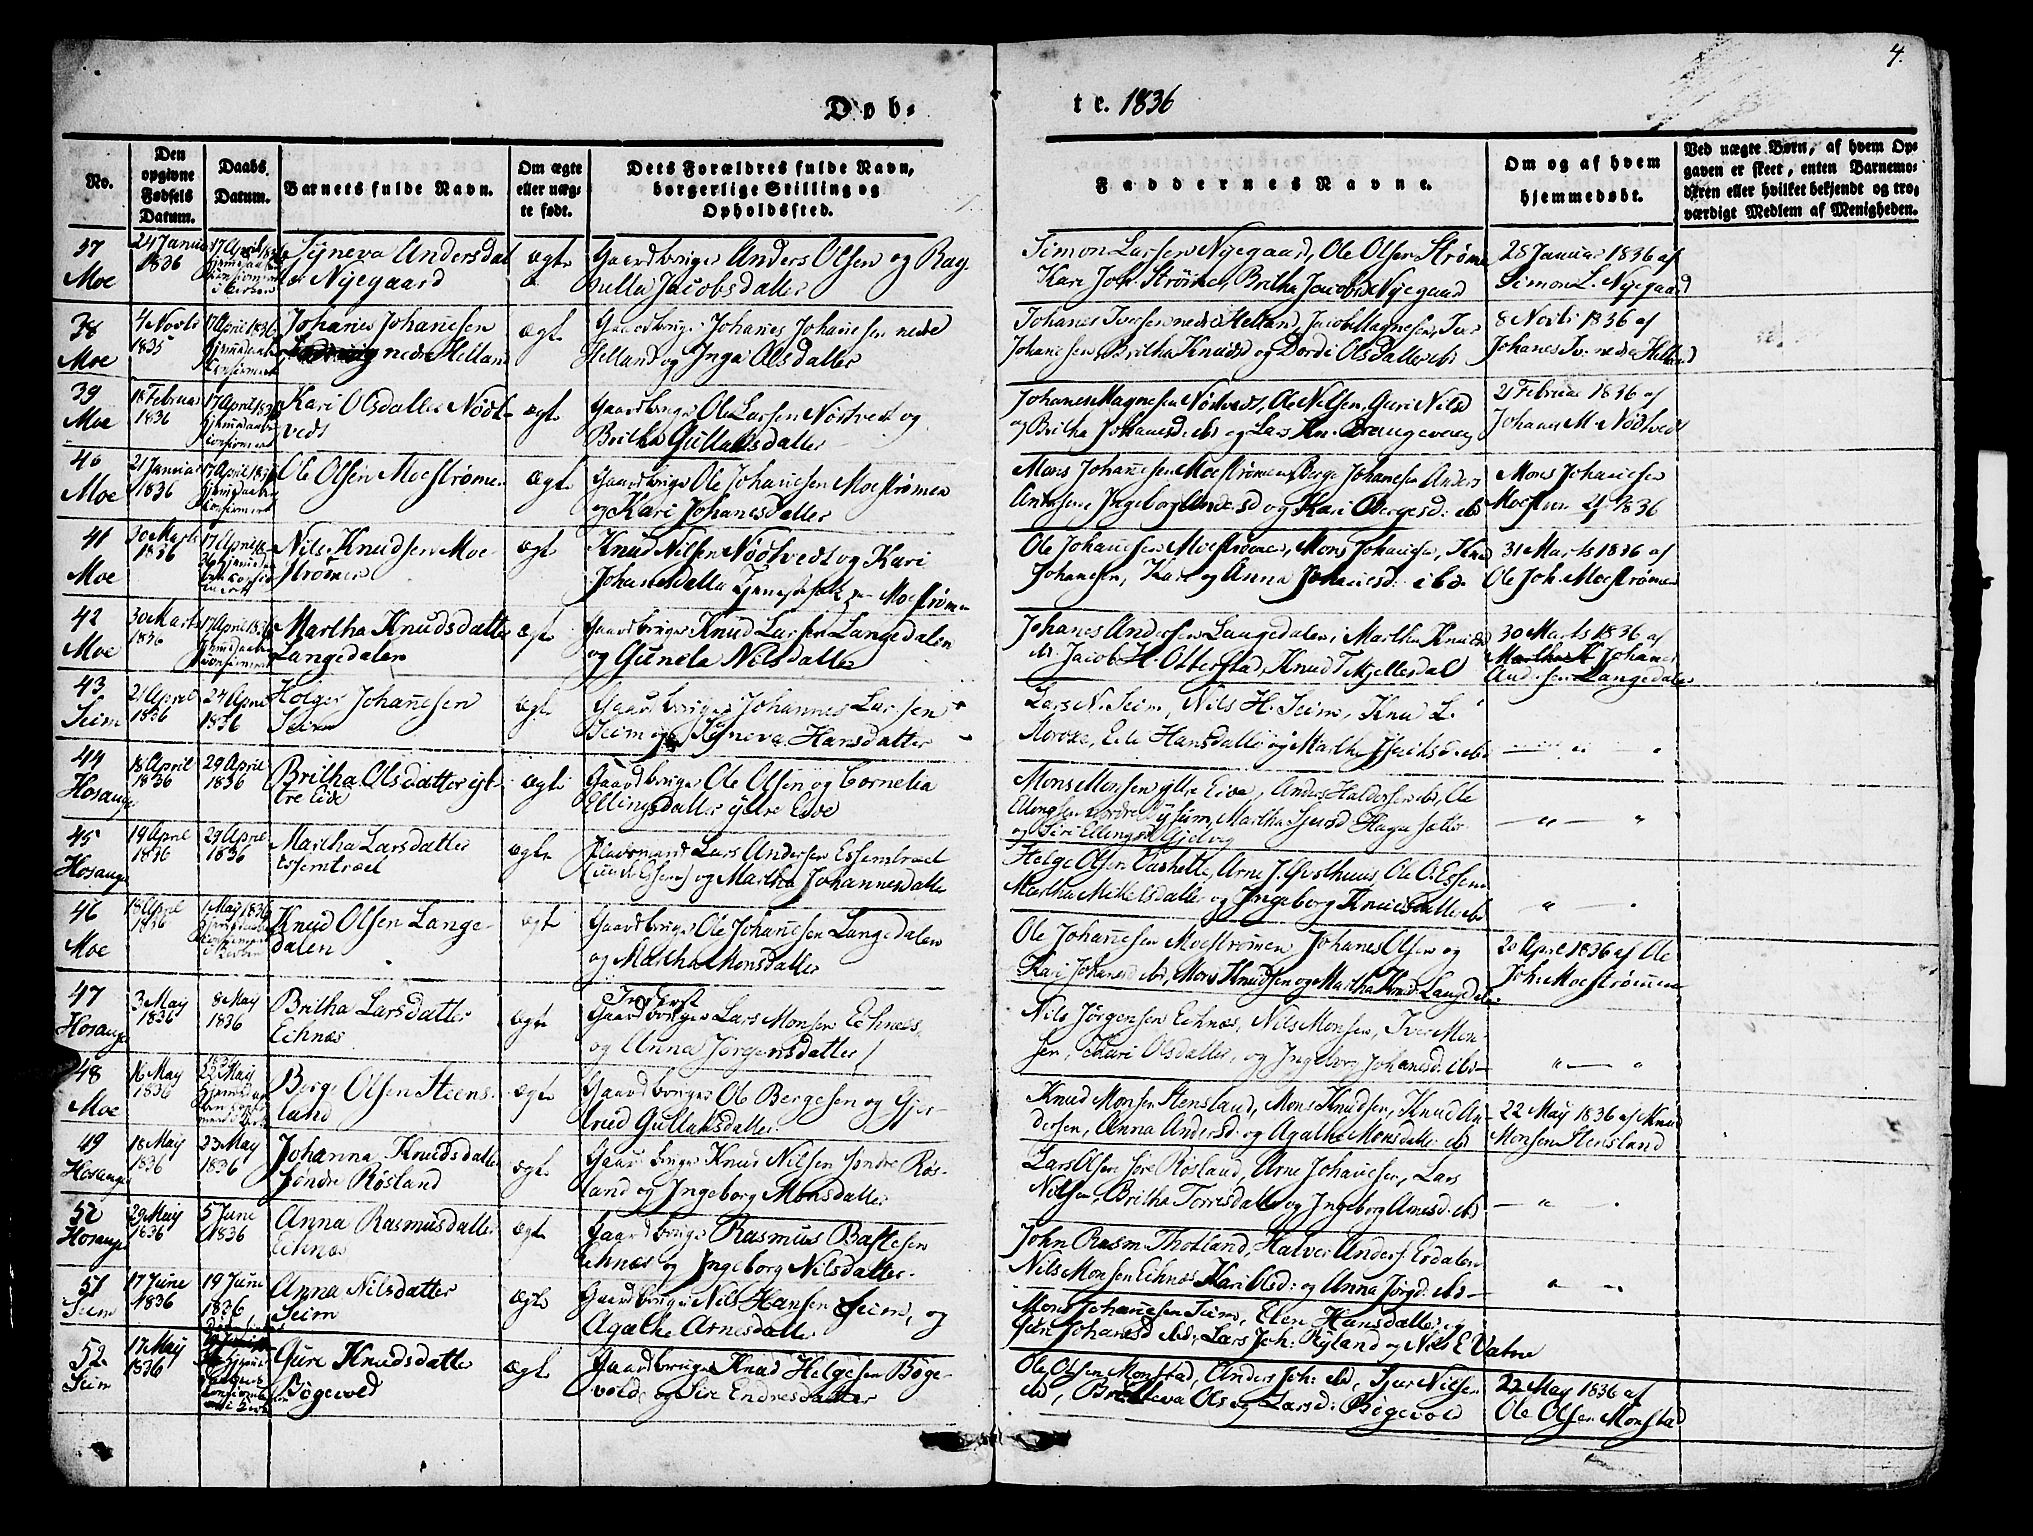 4.
Døb-
te. 1836
No.
Den opgivne Fødsels Datum.
Daabs Datum.
Barnets fulde Navn.
Om ægte eller uægte født.
Dets Forældres fulde Navn, borgerlige Stilling og Opholdssted.
Faddernes Navne.
Om og af hvem hjemmedøbt.
Ved uægte Børn, af hvem Opgaven er skeet, enten Barnemoderen eller hvilket bekjendt og troværdigt Medlem af Menigheden.
37 Moe
24 Januar 1836
17 April 1836
Syneva Andersdatter Nyegaard
ægte
Gaardbruger Anders Olsen og Ragnilla Jacobsdatter
Simon Larsen Nyegaard, Ole Olsen Strøme
Kari Joh. Strøime, Britha Jacobsd Nyegaard
28 Januar 1836 af
Simon L. Nyegaard
38 Moe
4 Novbr 1835
17 April 1836
Johanes Johanesen
nedre Helland
ægte
Gaardbruger Johanes Johanesen nedre
Helland og Inga Olsdatter
Johanes Iversen nedre Helland, Jacob Magnesen, Iver
Johanesen, Britha Knudsd og Dordi Olsdatter ibd
8 Novbr 1836 af
Johanes Iv. nedre Helland
39 Moe
18 Februar 1836
17 April 1836
Kari Olsdatter Nödtvedt
ægte
Gaardbruger Ole Larsen Nöstvedt og
Britha Gullaksdatter
Johanes Magnesen Nöstvedt, Ole Nilsen, Guri Nilsd
og Britha Johanesd: ibd og Lars Kn.
21 Februar 1836 af
Johanes M. Nödtvedt
40 Moe
21 Januar 1836
17 April 1836
Ole Olsen Moestrømen
ægte
Gaardbruger Ole Johanesen Moestrømen
og Kari Johanesdatter
Mons Johanesen Moestrømen, Berge Johanesen Anders
Ingeborg Andersd og Kari Bergesd: ibd
Mons Johanesen
41 Moe
30 Marts 1836
17 April
Nils Knudsen Moeströmen
ægte
Knud Nilsen Nödtvedt og Kari
Johanesdatter Tjenestefolk paa Moestrømen
Ole Johanesen Moestrømen, Mons Johanesen, Knud
Johanesen, Kari og Anna Johanesd: ibd.
31 Marts 1836 af
Ole Joh. Moestrømen
42 Moe
30 Marts 1836
17 April 1836
Martha Knudsdatter
Langedalen
ægte
Gaardbruger Knud Larsen Langedalen
og Gunela Nilsdatter
Johanes Andersen Langedalen, Martha Knudsd
ibd. Jacob H. Otterstad, Knud T Mjellesdal
30 Marts 1836 af
Martha K Johanes
Andersen Langedalen
43 Seim
21 April 1836
24 April 1836
Holger Johanesen
Seim
ægte
Gaardbruger Johannes Larsen
Seim og Syneva Hansdatter
Lars N. Seim, Nils H. Seim, Knud L.
Hansdatter og Martha Isachsd: ibd
44 Hosanger
18 April 1836
29 April 1836
Britha Olsdatter ytre Eide
ægte
Gaardbruger Ole Olsen og Cornelia
Ellingsdatter ytre Eide
Mons Monsen ytre Eide, Anders Haldorsen ibd, Ole
og Siri Ellingsd
45 Hosanger
19 April 1836
29 April 1836
Martha Larsdatter
Essemtræet
ægte
Lars Andersen Essemtræet
og Martha Johannesdatter
Helge Olsen Vashette, Arne J. Østhuus Ole O. Essem
Martha Mikkelsdatter og Ingeborg Knudsdatter ibd
46 Moe
18 April 1836
1 May 1836
Knud Olsen Langedalen
ægte
Gaardbruger Ole Johanesen Langedalen
og Martha Monsdatter
Ole Johanesen Moestrømen, Johanes Olsen og
Kari Johanesd ibd, Mons Knudsen og Martha Knud: Langedalen
20 April 1836 af Ole
Joh: Moestrømmen
47 Hosanger
3 May 1836
8 May 1836
Britha Larsdatter
Eihnæs
ægte
Gaardbruger Lars Monsen Eihnæs,
og Anna Jörgensdatter
Nils Jörgensen Eihnæs, Nils Monsen, Iver Monsen, Kari Olsdatter, og Ingeborg Johanesd: ibd
48 Moe
16 May 1836
22 May
Berge Olsen Steensland
ægte
Gaardbruger Ole Bergesen og Gjertrud Gullaksdatter
Knud Monsen Stensland, Mons Knudsen, Knud Andersen, Anna Andersd: og Agathe Monsdatter ibd
22 May 1836 af Knud
Monsen Steensland
49 Hosanger
18 May 1836
23 May 1836
Johanna Knudsdatter
söndre Røsland
ægte
Gaardbruger Knud Nilsen söndre Røsland og Ingeborg Monsdatter
Lars Olsen söre Røsland, Arne Johanesen, Lars
Nilsen, Britha Torrisdatter og Ingeborg Arnesd: ibd
52 Hosanger
29 May 1836
5 June 1836
Anna Rasmusdatter
Eihnæs
ægte
Gaardbruger Rasmus Bastesen
Eihnæs og Ingeborg Nilsdatter
John Rasm. Thotland, Halver Anders. Esdalen
Nils Monsen Eihnæs, Kari Olsd: og Anna Jørgd: ibd
51 Seim
17 June 1836
19 June 1836
Anna Nilsdatter
Seim
ægte
Gaardbruger Nils Hansen Seim, og
Agathe Arnesdatter
Mons Johanesen Seim, Elen Hansdatter og
Guri Johanesd ibd, Lars Joh: Ryland og Nils E Vatne
52 Seim
17 May 1836
Gure Knudsdatter
Bögevold
ægte
Gaardbruger Knud Helgesen Bögevold og Sire Endresdatter
Ole Olsen Monstad, Anders Joh: ibd, Sjur Nilsen
ibd, Olsd og Larsd: Bögevold
22 May 1836 af
Ole Olsen Monstad